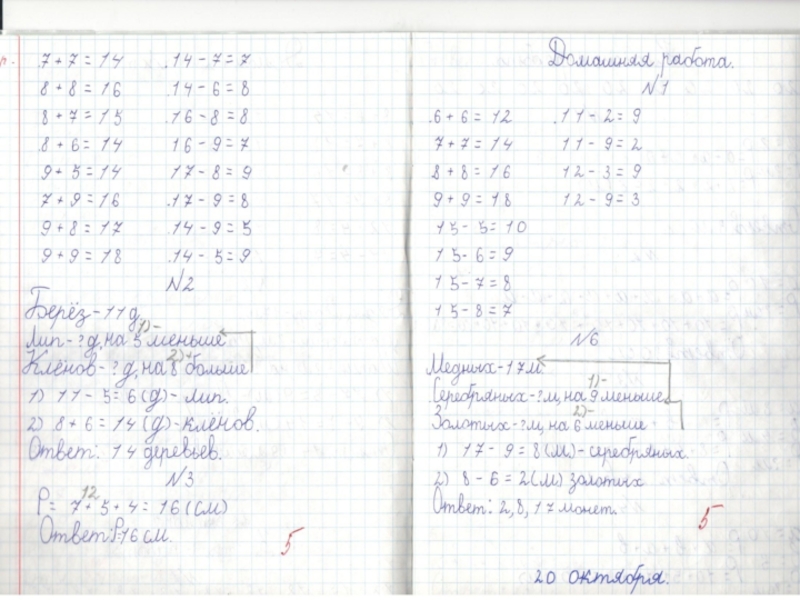 7 + 7 = 14 14 - 7 = 7
8 + 8 = 16 14 - 6 = 8
8 + 7 = 15 16 - 8 = 8
8 + 6 = 14 16 - 9 = 7
9 + 5 = 14 17 - 8 = 9
7 + 9 = 16 17 - 9 = 8
9 + 8 = 17 14 - 9 = 5
9 + 9 = 18 14 - 5 = 9
N2
Берёз - 11 д.
1) -
Лип - ? д, на 5 меньше
2) +
Клёнов - ? д, на 8 больше
1) 11 - 5 = 6 (д) - лип.
2) 8 + 6 = 14 (д) - клёнов.
Ответ: 14 деревьев.
N3
12
P = 7 + 5 + 4 = 16 (см)
Ответ: P 16 см.
5
Домашняя работа.
N1
6 + 6 = 12 11 - 2 = 9
7 + 7 = 14 11 - 9 = 2
8 + 8 = 16 12 - 3 = 9
9 + 9 = 18 12 - 9 = 3
15 - 5 = 10
15 - 6 = 9
15 - 7 = 8
15 - 8 = 7
N6
Медных - 17 м
1) -
Серебряных - ? м, на 9 меньше
2) -
Золотых - ? м, на 6 меньше
1) 17 - 9 = 8 (м) - серебряных.
2) 8 - 6 = 2 (м) золотых
Ответ: 2, 8, 17 монет.
5
20 октября.